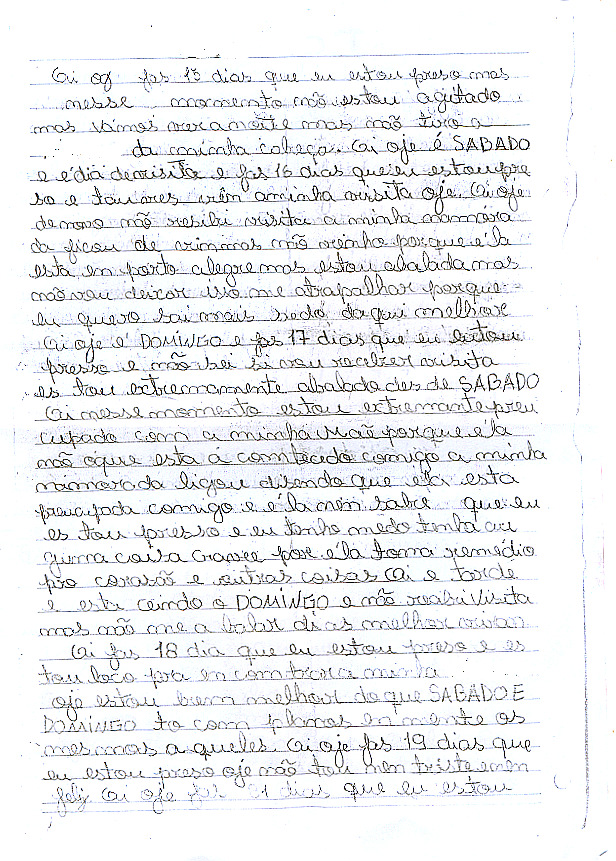 Oi og fas 15 dias que eu estou preso mas
nesse momento não estou agitado
mas vamos ver a noite mas não tiro a
da minha cabeça. Oi oje é SABADO
e e dia de visita e fas 16 dias que eu estou pre
so e talvres vên a minha visita oje. Oi oje
de novo não resibi visita a minha namora
da ficou de vim mas não veinho porque é la
esta en porto alegre mas estou abalada mas
não vou deixar isso me atrapalhar porque
eu quero sai mais sedo daqui melhor
Oi oje é DOMINGO e fas 17 dias que eu estou
presso e não sei si vou receber visita
es tou extremamente abalado des de SABADO
Oi nesse momento estou extremante preu
cupado com a minha Mãe porque é la
não oque esta a contecedo comigo a minha
namorada ligou disendo que ela esta
preucupada comigo e é la nen sabe que eu
es tou presso e eu tenho medo tenha au
guma coisa grave por é la toma remédio
pro corasão e outras coisas Oi e tarde
e esta caindo o DOMINGO e não resibi Visita
mas não me a balar dias melhor virão
Oi fas 18 dia que eu estou preso e es
tou loco pra en contrar a minha
oje estou bem melhor do que SABADO E
DOMINGO to com planos en mente os
mesmos a queles. Oi oje fas 19 dias que
eu estou preso oje não tou nen triste nen
felis Oi oje fas 21 dias que eu estou